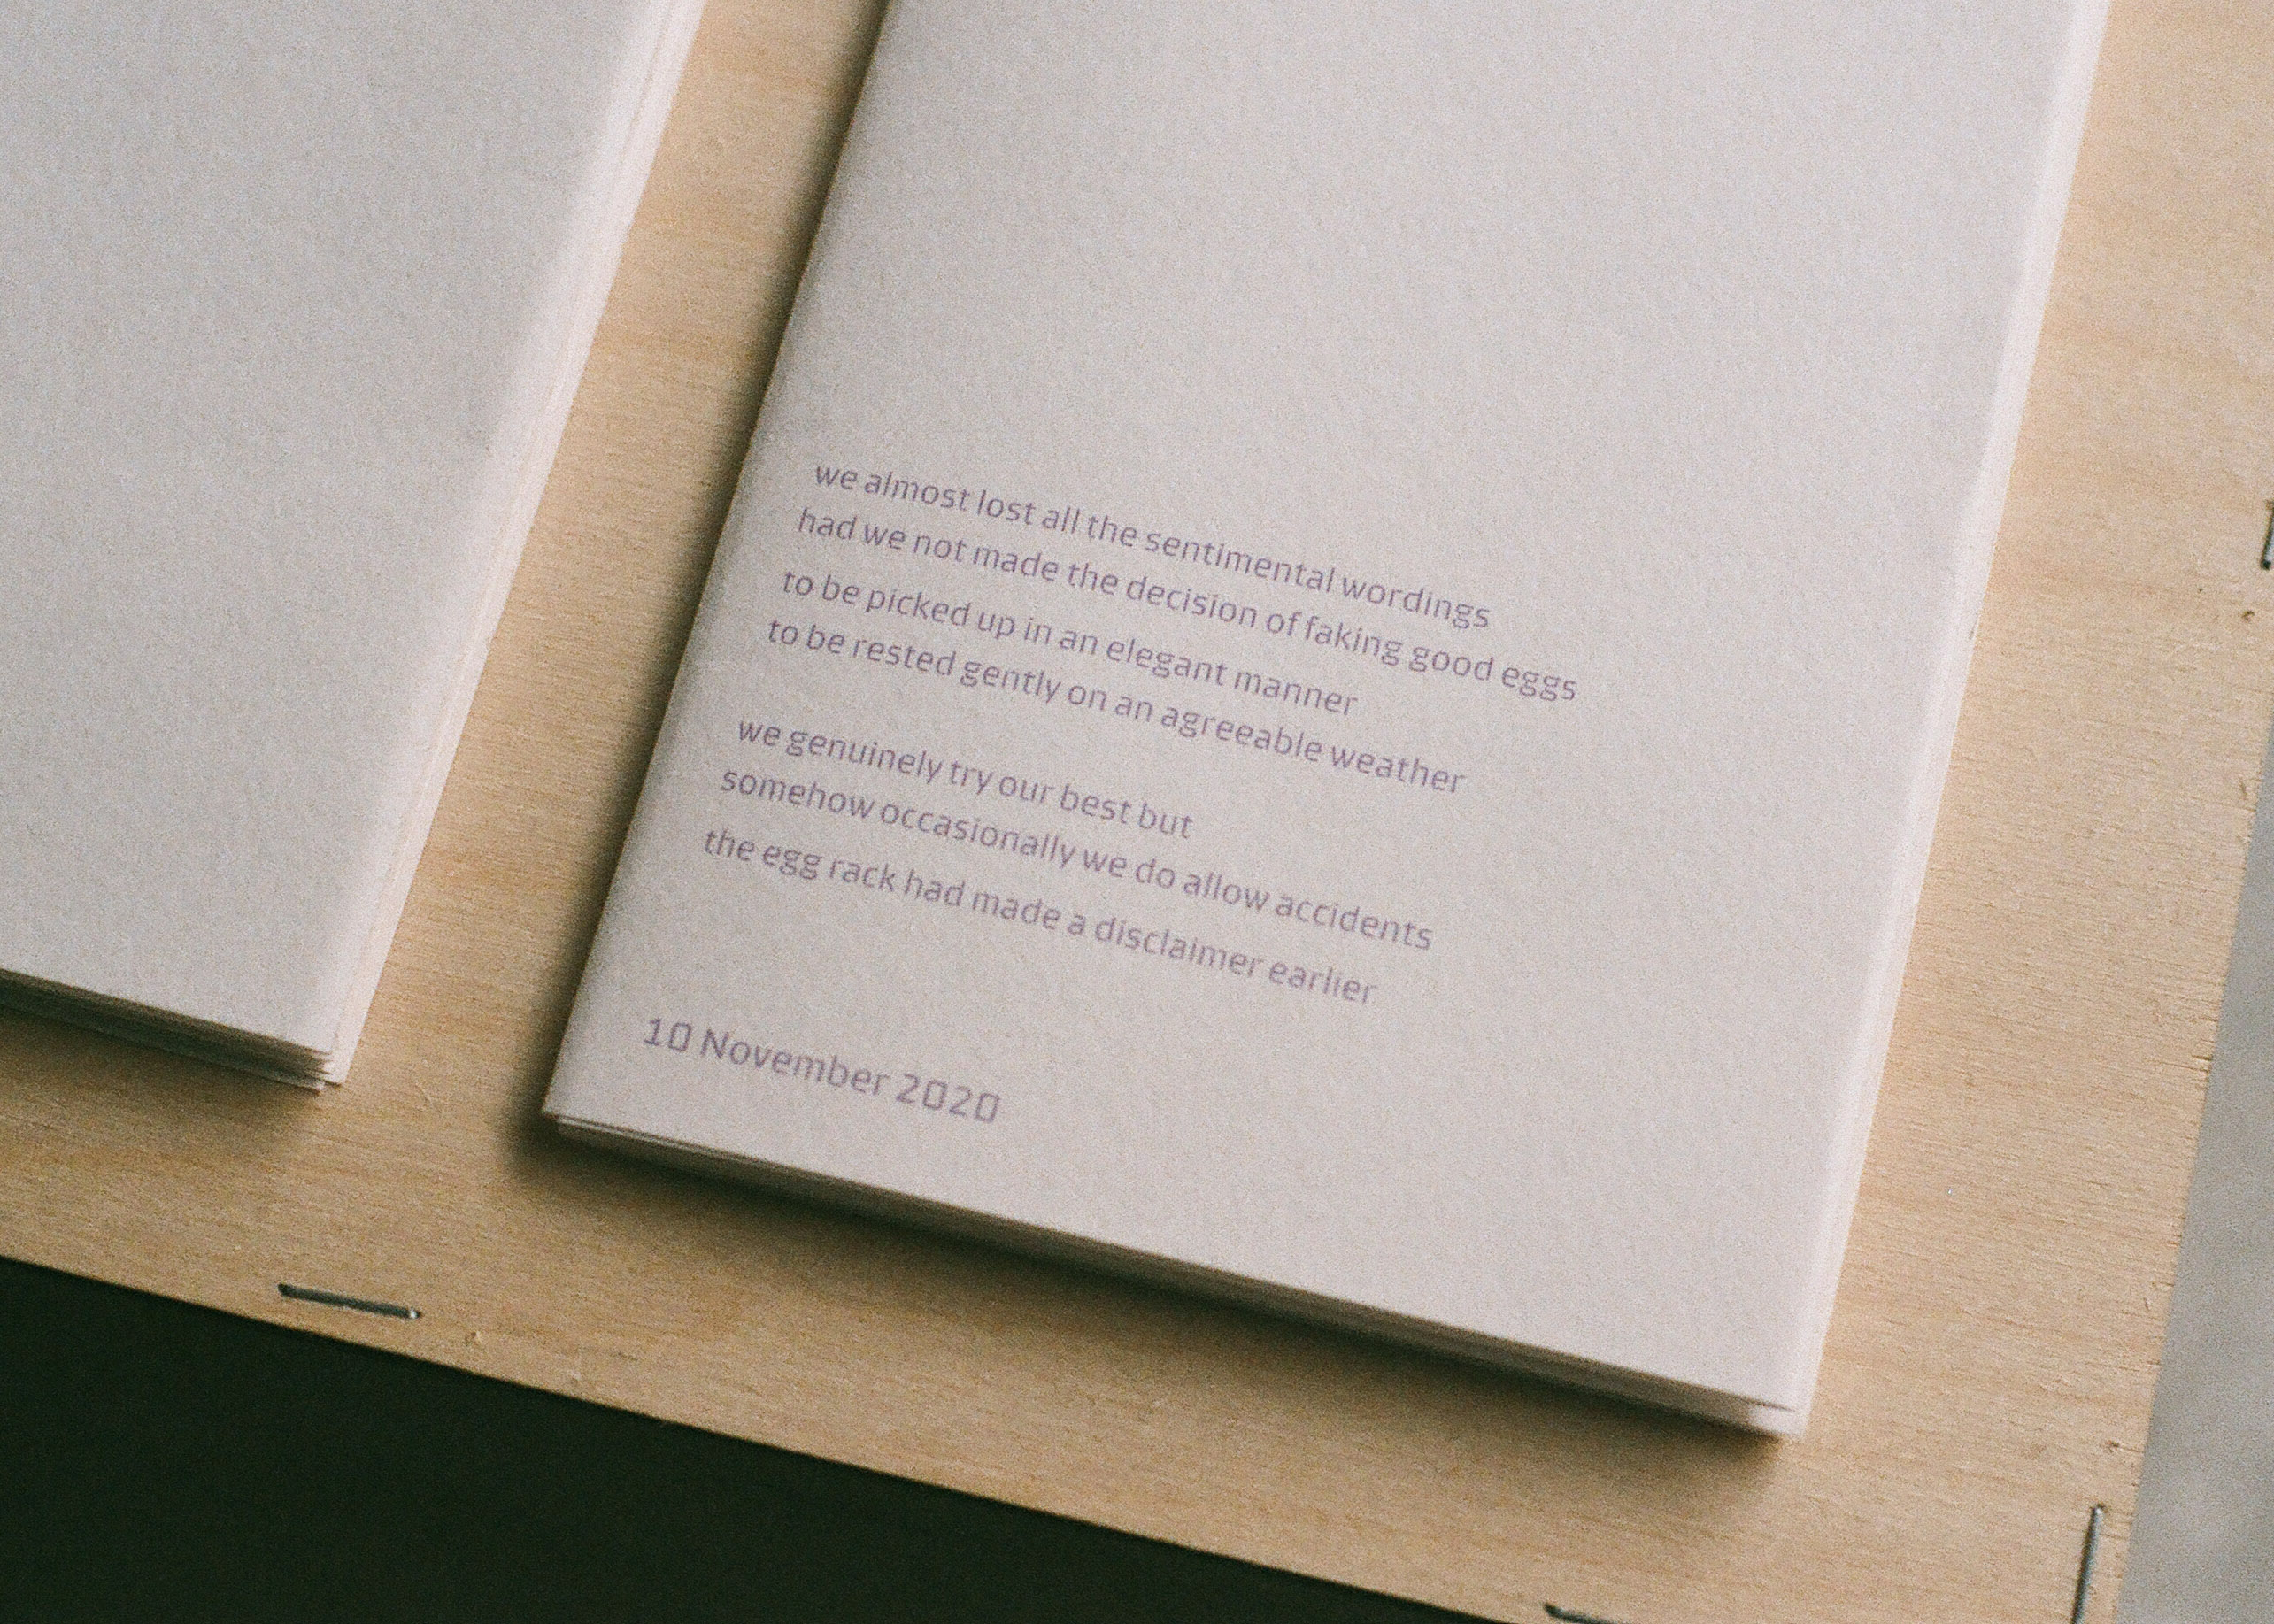 we almost lost all the sentimental wordings
had we not made the decision of faking good eggs
to be picked up in an elegant manner
to be rested gently on an agreeable weather
we genuinely try our best but
somehow occasionally we do allow accidents
the egg rack had made a disclaimer earlier
10 November 2020